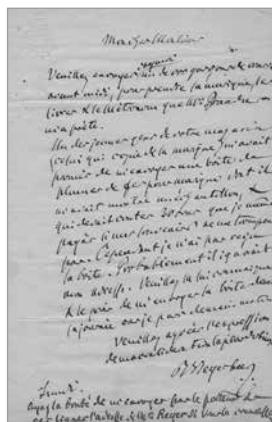 Mon cher Monsieur
Veuillez envoyer un de vos garçons de
avant midi, pour prendre la musique, le
livre & le Métronome que Mr. Brandus
m'a prêté.
Un des jeunes gens de votre magasin
(celui qui copie de la musique) m'avait
promis de m'envoyer une boîte de
plumes de fer pour musique dont il
m'avait montré un échantillon, &
qui devait coûter
payer si
pas. Cependant je n'ai pas reçu
la boîte. Probablement il ignorait
mon adresse. Veuillez la lui communiquer
& le prier de m'envoyer la boîte dans
la journée car je pars demain matin
Veuillez agréer l'expression
de ma considération la plus distinguée
Meyerbeer
Lundi
Ayez la bonté de m'envoyer par le porteur de
l'adresse de Mr. Reyer si vous la connaissez